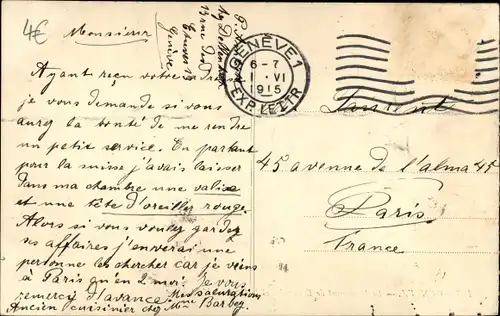 4€
Monsieur
13 rue des
Etuves 13
Genève
GENÈVE 1
6-7
1 VI
1915
EXP. LETTR.
Ayant reçu votre
je vous demande si vous
aurez la bonté de me rendre
un petit service. En partant
pour la suisse j'avais laisser
dans ma chambre une valise
et une tête d'oreiller rouge.
Alors si vous voulez gardez
ses affaires j'enverai une
personne les chercher car je viens
à Paris qu'en 2 moi. je vous
remerci d'avance Mes salutations
Ancien cuisinier chez Mme Barbey
45 avenue de l'alma 45
Paris
France